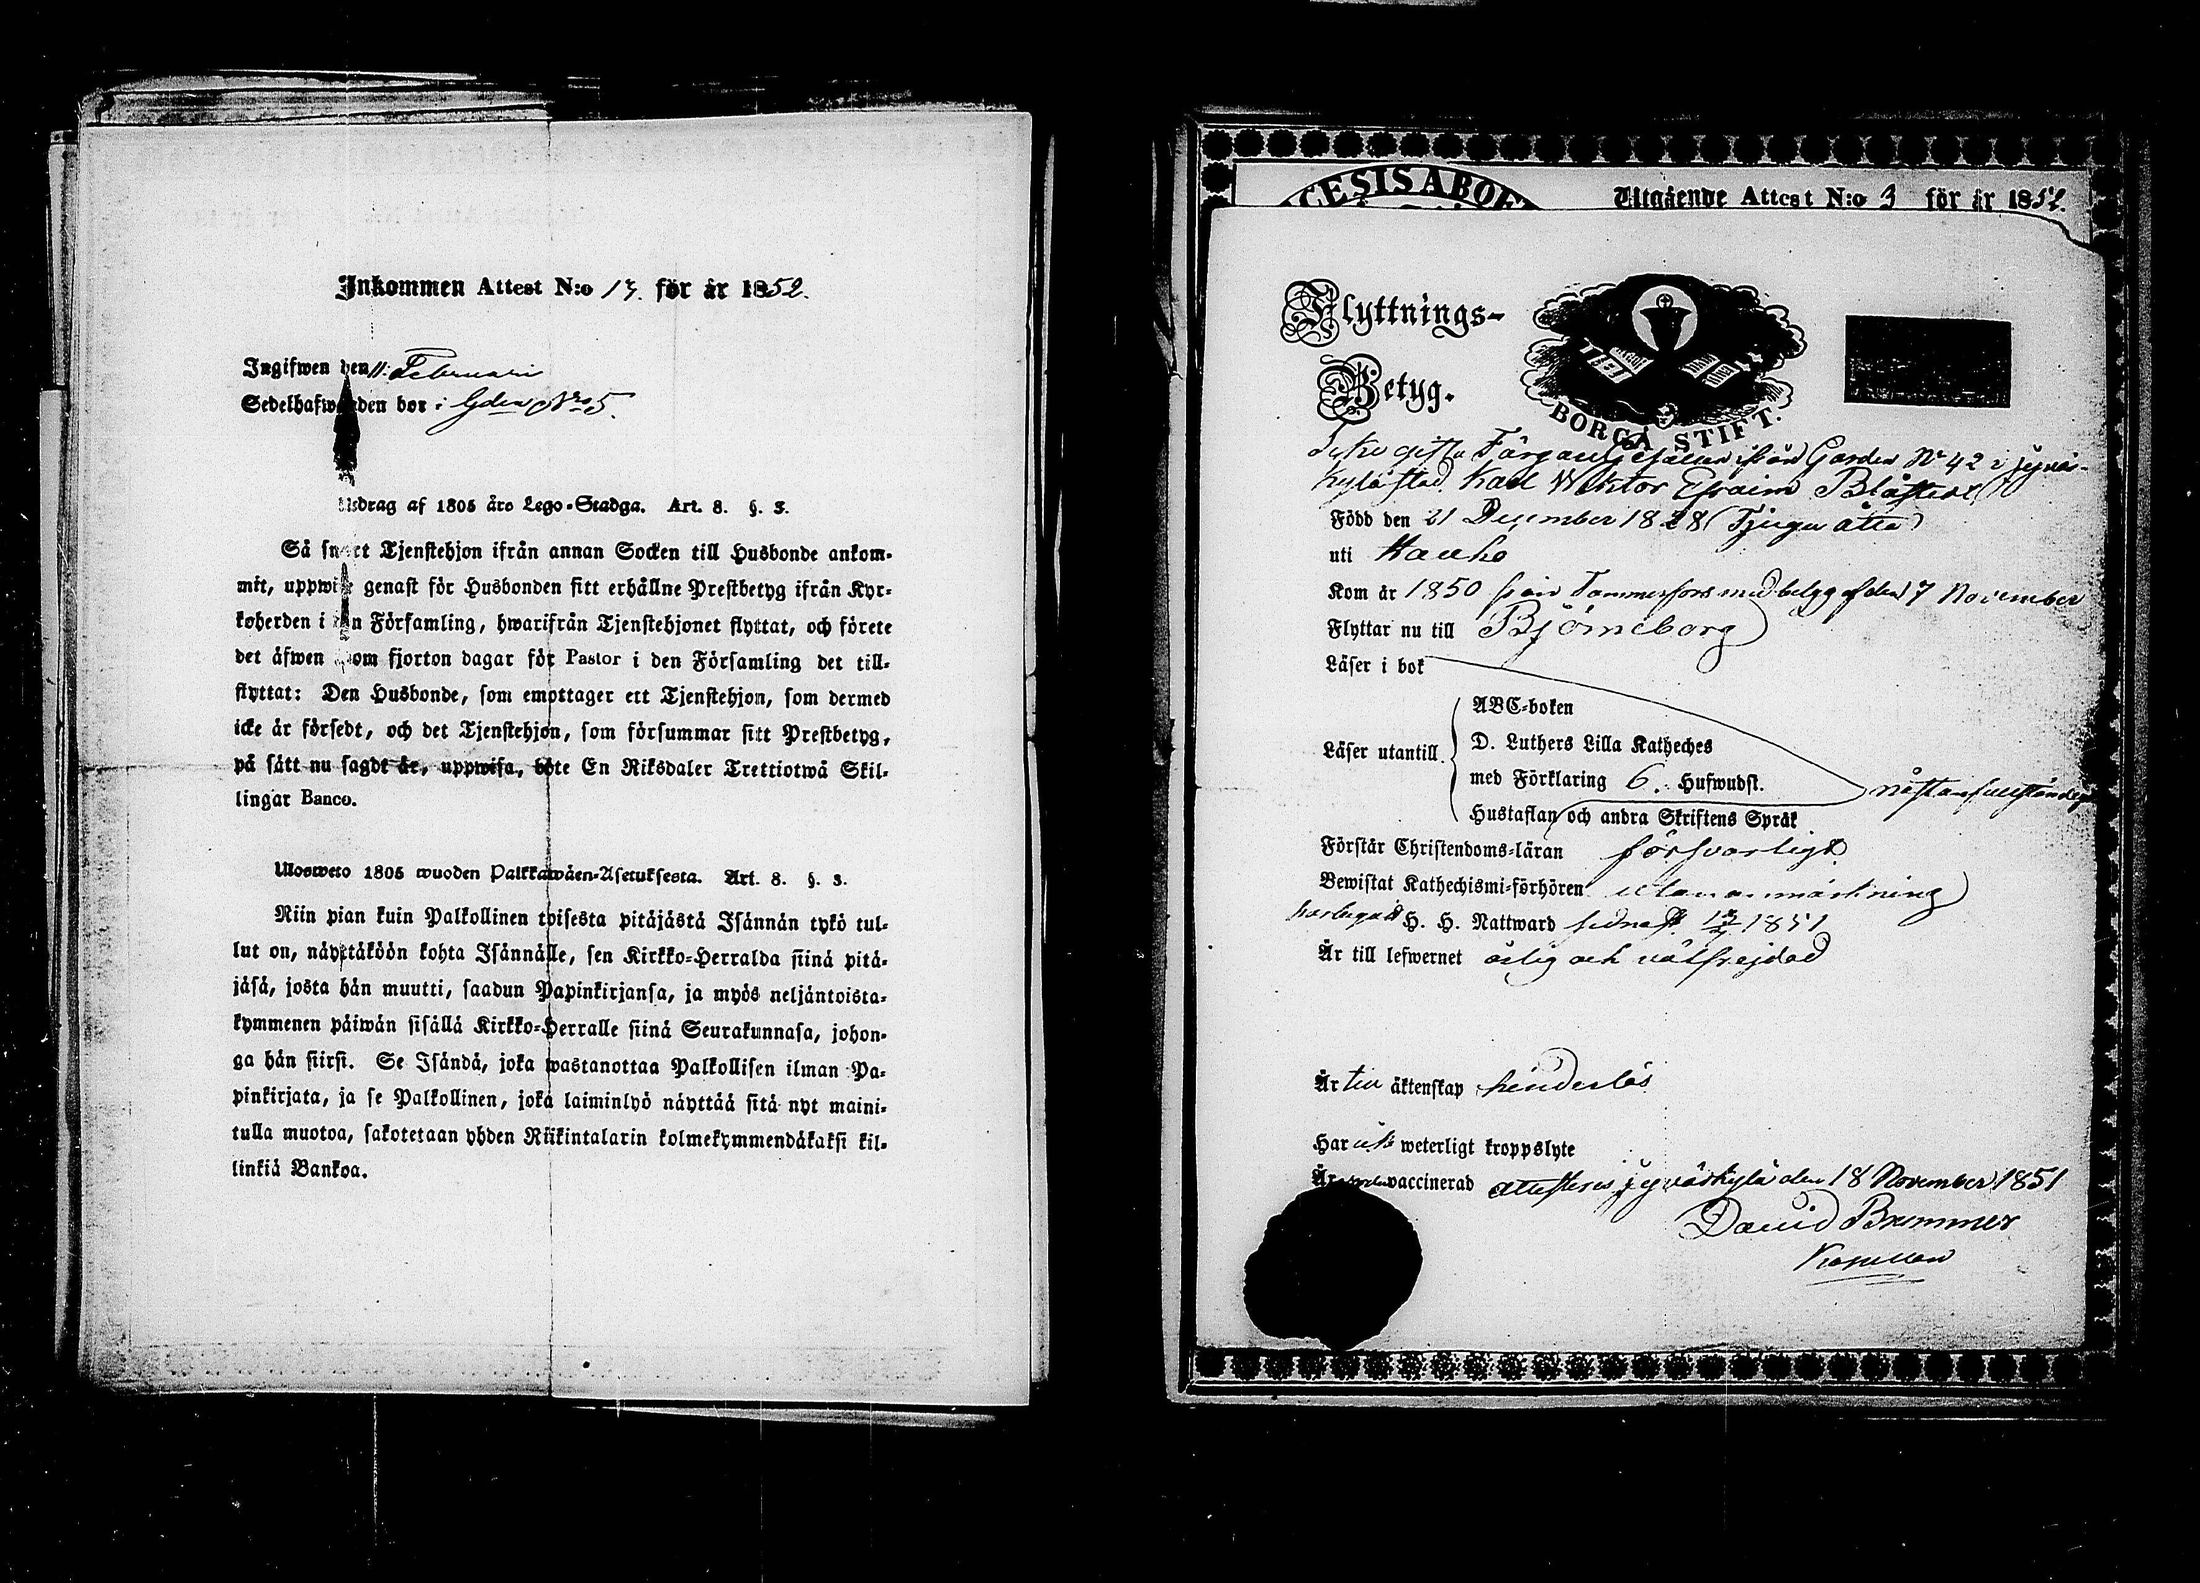 Inkommen Attest N:o 17. för år 1852.
Ingifwen den 11. Februari
Sedelhafwanden bor i Gden Nro 5.
Utdrag af 1805 års Lego-Stadga. Art. 8. §. 3.
Så snart Tjenstehjon ifrån annan Socken till Husbonde ankom-
mit, uppwise genast för Husbonden sitt erhållne Prestbetyg ifrån Kyr-
koherden i den Församling, hwarifrån Tjenstehjonet flyttat, och förete
det äfwen inom fjorton dagar för Pastor i den Församling det till-
flyttat: Den Husbonde, som emottager ett Tjenstehjon, som dermed
icke är försedt, och det Tjenstehjon, som försummar sitt Prestbetyg,
på sätt nu sagdt är, uppwisa, böte En Riksdaler Trettiotwå Skil-
lingar Banco.
Ulosweto 1805 wuoden Palkkawäen-Asetuksesta. Art. 8. §. 3.
Niin pian kuin Palkollinen toisesta pitäjästä Isännän tykö tul-
lut on, näyttäköön kohta Isännälle, sen Kirkko-Herralda siinä pitä-
jäsä, josta hän muutti, saadun Papinkirjansa, ja myös neljäntoista-
kymmenen päiwän sisällä Kirkko-Herralle siinä Seurakunnasa, johon-
ga hän siirsi. Se Isändä, joka wastanottaa Palkollisen ilman Pa-
pinkirjata, ja se Palkollinen, joka laiminlyö näyttää sitä nyt maini-
tulla muotoa, sakotetaan yhden Riikintalarin kolmekymmendäkaksi kil-
linkiä Bankoa.
CESIS ABOE
Utgående Attest N:o 3 för år 1852.
Flyttnings-
Betyg.
BORGÅ STIFT.
Icke gifte Färgare Gesällen ifrån Gården No 42 i Jyväs-
kylä stad Karl Wiktor Efraim Blåfield
Född den 21 December 1828 (Tjugu åtta)
uti Hauho
Kom år 1850 från Tammerfors med betyg af den 7 November
Flyttar nu till Björneborg
Läser i bok
ABC-boken
Läser utantill D. Luthers Lilla Katheches
med Förklaring 6. Hufwudst. nästan fullständigt
Hustaflan och andra Skriftens Språk
Förstår Christendoms-läran försvarligt
Bewistat Kathechismi-förhören utan anmärkning
har begått H. H. Nattward sednast 1851
Är till lefwernet ärlig och välfrejdad
Är till äktenskap hinderlös
Har ick weterligt kroppslyte
Är vaccinerad attesteras, Jyväskylä den 18 November 1851
David Brummer
Kapellan